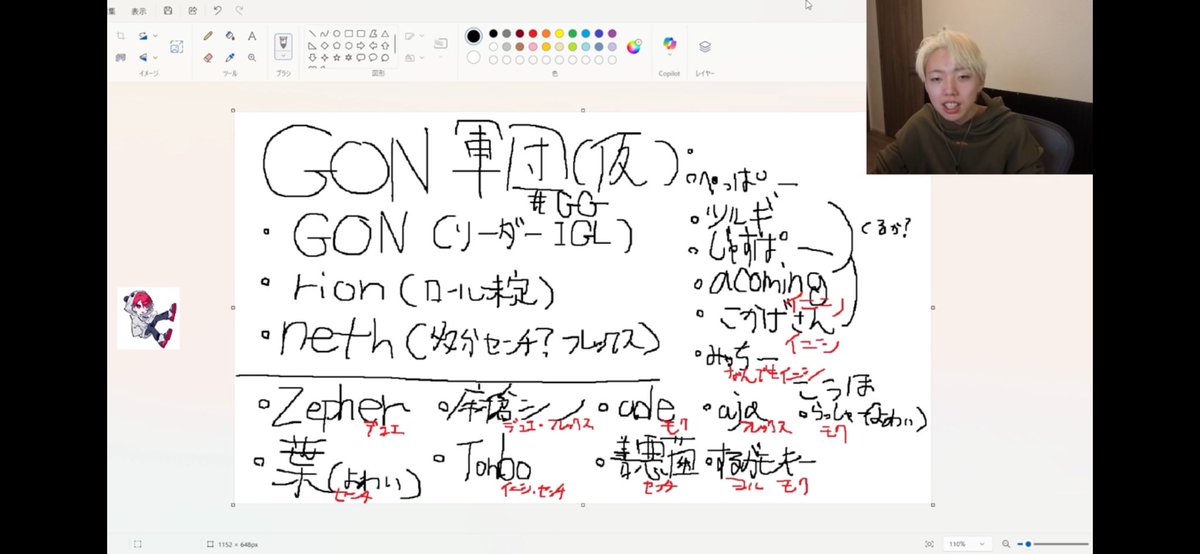 集 表示
イメージ ツール ブラシ 図形 色 Copilot レイヤー
GON 軍団(仮)
#GG
・GON (リーダー IGL)
・rion (ロール未定)
・neth (多分センチ? フレックス)
・ぺっぱー
・ツルギ
・じゃすぱー
・acoming
イニシ
・こかげさん
イニシ
くるか?
・みっちー
なんでもイニシ
こうほ
・Zepher
デュエ
シン
デュエ・フレックス
・ade
モク
・aja
フレックス
・らっしゃー(よわい)
モク
・葉(よわい)
センチ
・Tonbo
イニシ・センチ
善悪菌
センチ
・するがモンキー
モク
1152 × 648px
110%